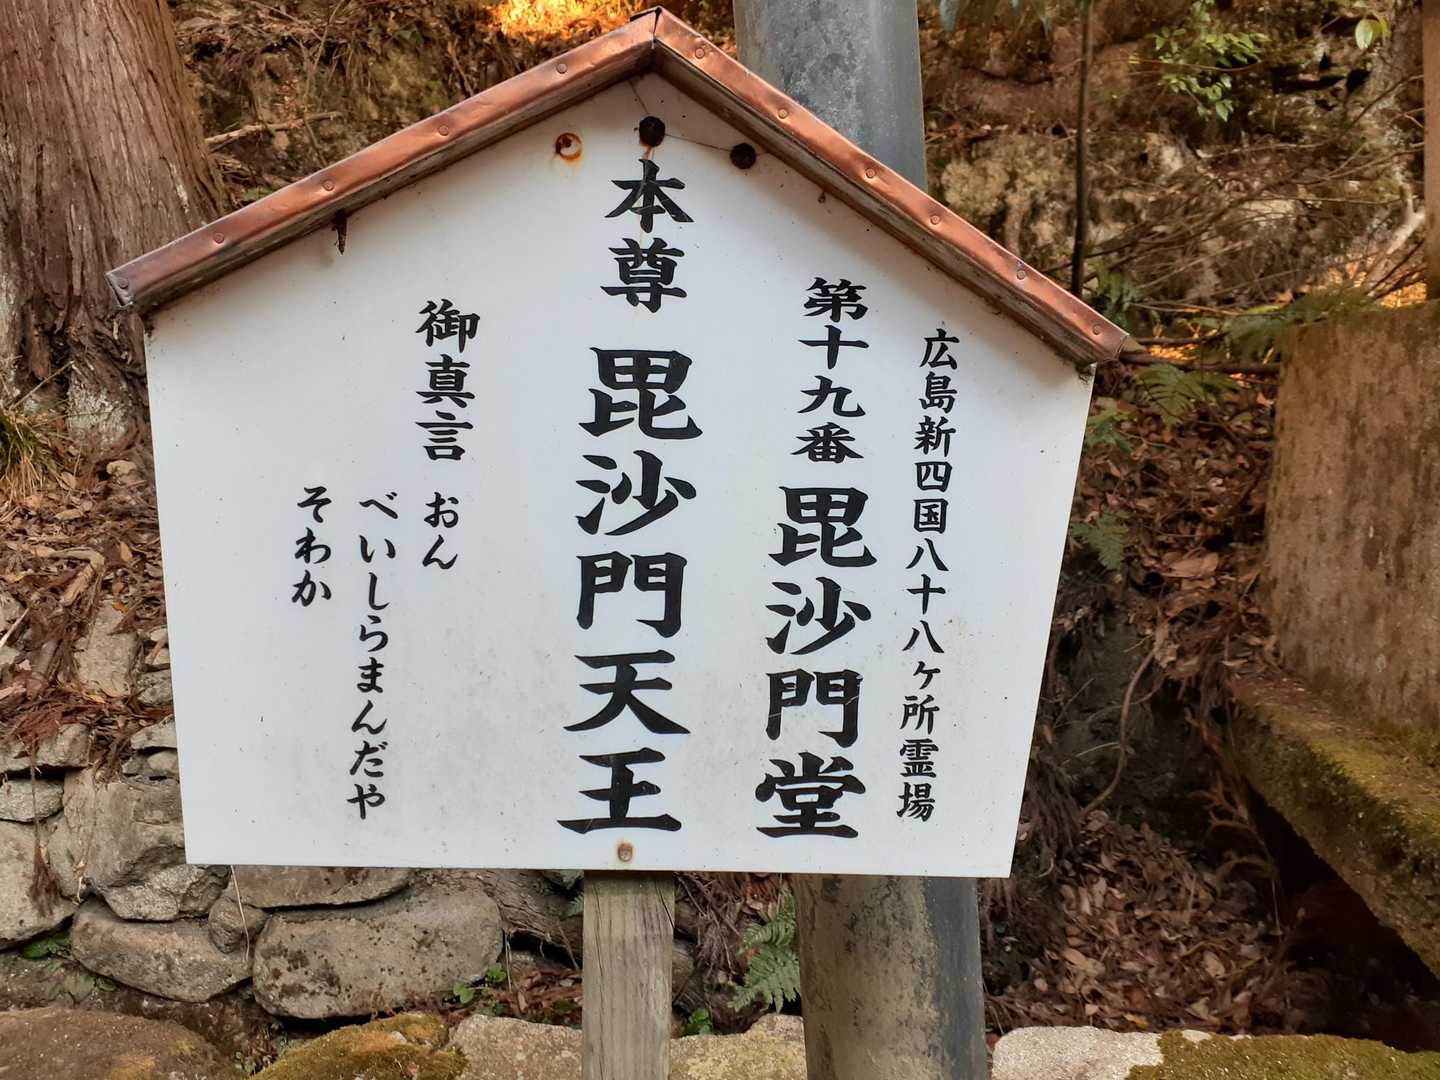 広島新四国八十八ヶ所霊場
第十九番 毘沙門堂
本尊 毘沙門天王
御真言 おん
べいしらまんだや
そわか